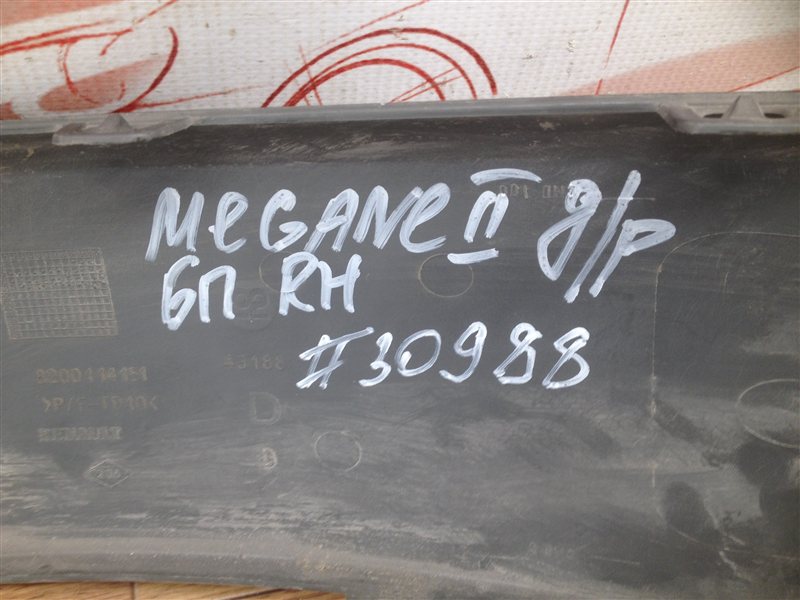 MeGANe II д/р
бП RH
#30988
8200114151
>P/E-TD10<
RENAULT
D